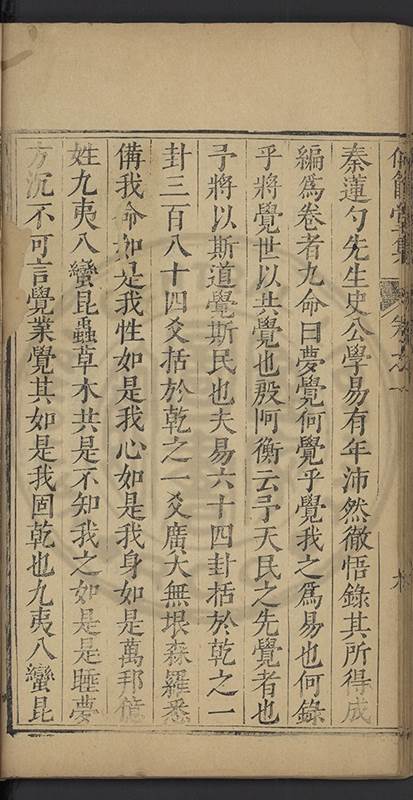 秦蓮勺先生史公學易有年沛然徹悟錄其所得成
編爲卷者九命曰夢覺何覺乎覺我之爲易也何錄
乎將覺世以共覺也殷阿衡云予天民之先覺者也
予將以斯道覺斯民也夫易六十四卦括於乾之一
卦三百八十四爻括於乾之一爻廣大無垠森羅悉
備我命如是我性如是我心如是我身如是萬邦億
姓九夷八蠻昆蟲草木共是不知我之如是是睡夢
方沉不可言覺業覺其如是我固乾也九夷八蠻昆